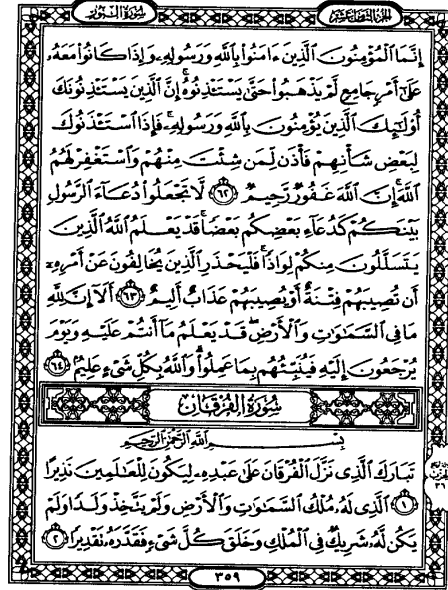 الجزء الثامن عشر سورة النور
إِنَّمَا ٱلْمُؤْمِنُونَ ٱلَّذِينَ ءَامَنُوا۟ بِٱللَّهِ وَرَسُولِهِۦ وَإِذَا كَانُوا۟ مَعَهُۥ
عَلَىٰٓ أَمْرٍ جَامِعٍ لَّمْ يَذْهَبُوا۟ حَتَّىٰ يَسْتَـْٔذِنُوهُ ۚ إِنَّ ٱلَّذِينَ يَسْتَـْٔذِنُونَكَ
أُو۟لَـٰٓئِكَ ٱلَّذِينَ يُؤْمِنُونَ بِٱللَّهِ وَرَسُولِهِۦ ۚ فَإِذَا ٱسْتَـْٔذَنُوكَ
لِبَعْضِ شَأْنِهِمْ فَأْذَن لِّمَن شِئْتَ مِنْهُمْ وَٱسْتَغْفِرْ لَهُمُ
ٱللَّهَ ۚ إِنَّ ٱللَّهَ غَفُورٌ رَّحِيمٌ ٦٢ لَّا تَجْعَلُوا۟ دُعَآءَ ٱلرَّسُولِ
بَيْنَكُمْ كَدُعَآءِ بَعْضِكُم بَعْضًا ۚ قَدْ يَعْلَمُ ٱللَّهُ ٱلَّذِينَ
يَتَسَلَّلُونَ مِنكُمْ لِوَاذًا ۚ فَلْيَحْذَرِ ٱلَّذِينَ يُخَالِفُونَ عَنْ أَمْرِهِۦٓ
أَن تُصِيبَهُمْ فِتْنَةٌ أَوْ يُصِيبَهُمْ عَذَابٌ أَلِيمٌ ٦٣ أَلَآ إِنَّ لِلَّهِ
مَا فِى ٱلسَّمَـٰوَٰتِ وَٱلْأَرْضِ ۖ قَدْ يَعْلَمُ مَآ أَنتُمْ عَلَيْهِ وَيَوْمَ
يُرْجَعُونَ إِلَيْهِ فَيُنَبِّئُهُم بِمَا عَمِلُوا۟ ۗ وَٱللَّهُ بِكُلِّ شَىْءٍ عَلِيمٌۢ ٦٤
سُورَةُ الفُرْقَانِ
بِسْمِ ٱللَّهِ ٱلرَّحْمَـٰنِ ٱلرَّحِيمِ
تَبَارَكَ ٱلَّذِى نَزَّلَ ٱلْفُرْقَانَ عَلَىٰ عَبْدِهِۦ لِيَكُونَ لِلْعَـٰلَمِينَ نَذِيرًا
١ ٱلَّذِى لَهُۥ مُلْكُ ٱلسَّمَـٰوَٰتِ وَٱلْأَرْضِ وَلَمْ يَتَّخِذْ وَلَدًا وَلَمْ
يَكُن لَّهُۥ شَرِيكٌ فِى ٱلْمُلْكِ وَخَلَقَ كُلَّ شَىْءٍ فَقَدَّرَهُۥ تَقْدِيرًا ٢
٣٥٩